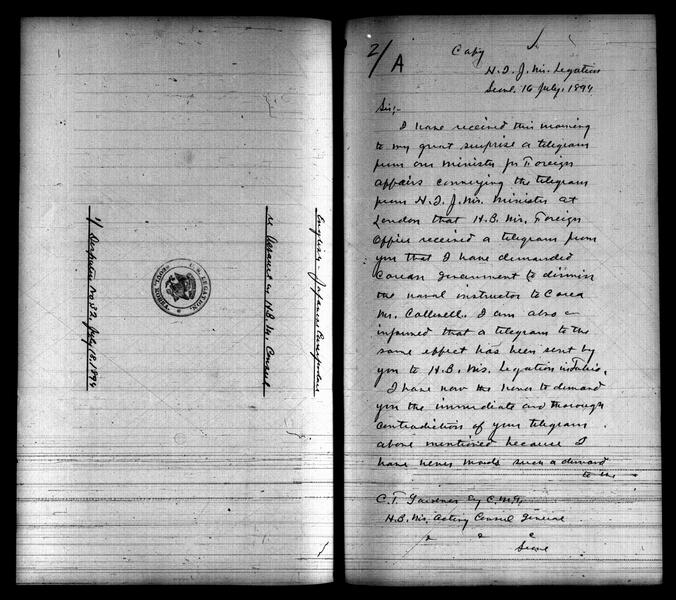 English - Japanese Correspondence
re Assault on H.B.M. Consul
1/ Despatch No 32, July 18, 1894
U.S. LEGATION,
SEOUL, KOREA.
2/
A
Copy
H.I.J.Ms. Legation
Seoul, 16 July, 1894
Sir;-
I have received this morning
to my great surprise a telegram
from our Minister for Foreign
Affairs conveying the telegram
from H.I.J.Ms. Minister at
London that H.B.Ms. Foreign
Office received a telegram from
you that I have demanded
Corean Government to dismiss
the naval instructor to Corea
Mr. Callwell. I am also
informed that a telegram to the
same effect has been sent by
you to H.B.Ms. Legation in Tokio.
I have now the honor to demand
you the immediate and thorough
contradiction of your telegram
above mentioned because I
have never made such a demand
to the
C.T. Gardner Esq C.M.G.,
H.B.Ms. Acting Consul General
&c &c &c
Seoul